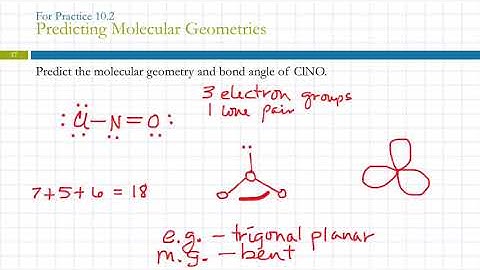 For Practice 10.2
Predicting Molecular Geometries
17
Predict the molecular geometry and bond angle of ClNO.
3 electron groups
1 lone pair
:Cl–N=O:
7+5+6 = 18
e.g. – trigonal planar
m.g. – bent